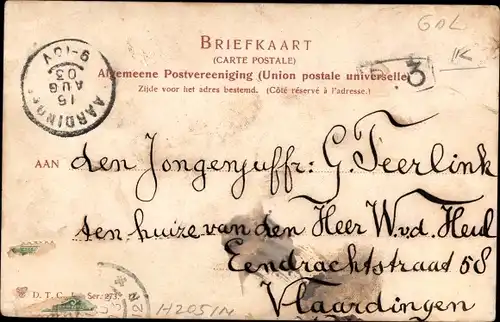 GDL
BRIEFKAART
(CARTE POSTALE)
Algemeene Postvereeniging (Union postale universelle)
Zijde voor het adres bestemd. (Côté réservé à l'adresse.)
3
AARDINGE
15
AUG
03
9-10V
AAN den Jongenjuffr: G. Teerlink
ten huize van den Heer W.v.d. Heul
Eendrachtstraat 58
Vlaardingen
D. T. C. L. Ser. 273
H2051N